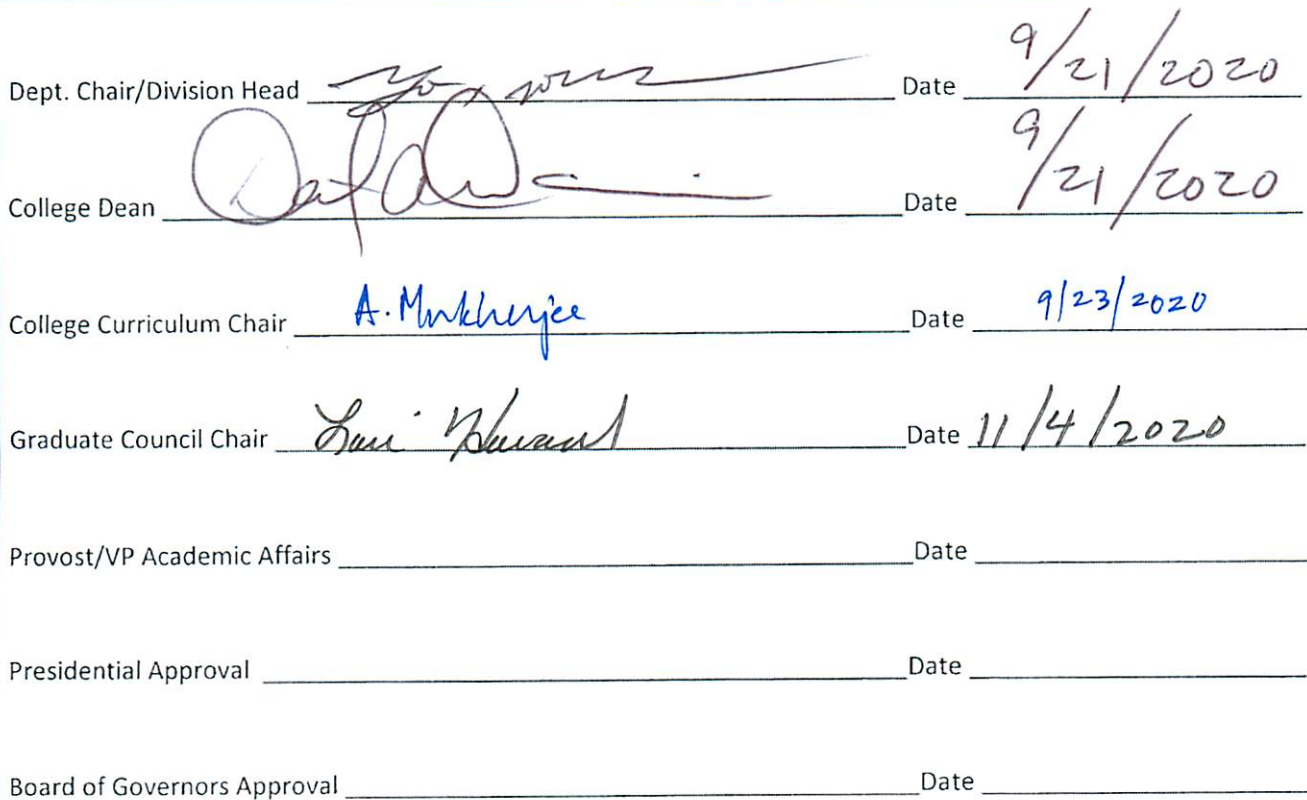 Dept. Chair/Division Head Date 9/21/2020
College Dean Date 9/21/2020
College Curriculum Chair A. Mukherjee Date 9/23/2020
Graduate Council Chair Lori Howard Date 11/4/2020
Provost/VP Academic Affairs Date
Presidential Approval Date
Board of Governors Approval Date